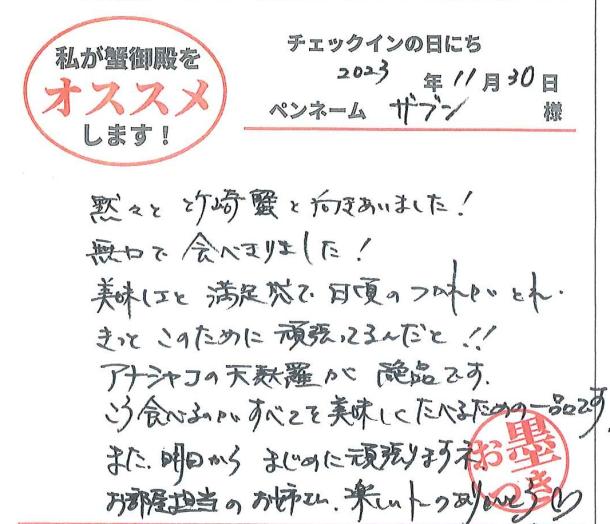 私が蟹御殿を
オススメ
します!
チェックインの日にち
2023年11月30日
ペンネーム ザブン 様
黙々と竹崎蟹と向きあいました!
無口で食べきりました!
美味しさと満足感で日頃のつかれがとれ.
きっとこのために頑張ってるんだと!!
アナジャコの天麩羅が絶品です.
こう食べるのがすべてを美味しくたべるための一品です.
また、明日からまじめに頑張りますネ
お部屋担当のお姉さん、楽しいトークありがとう♡
お墨つき